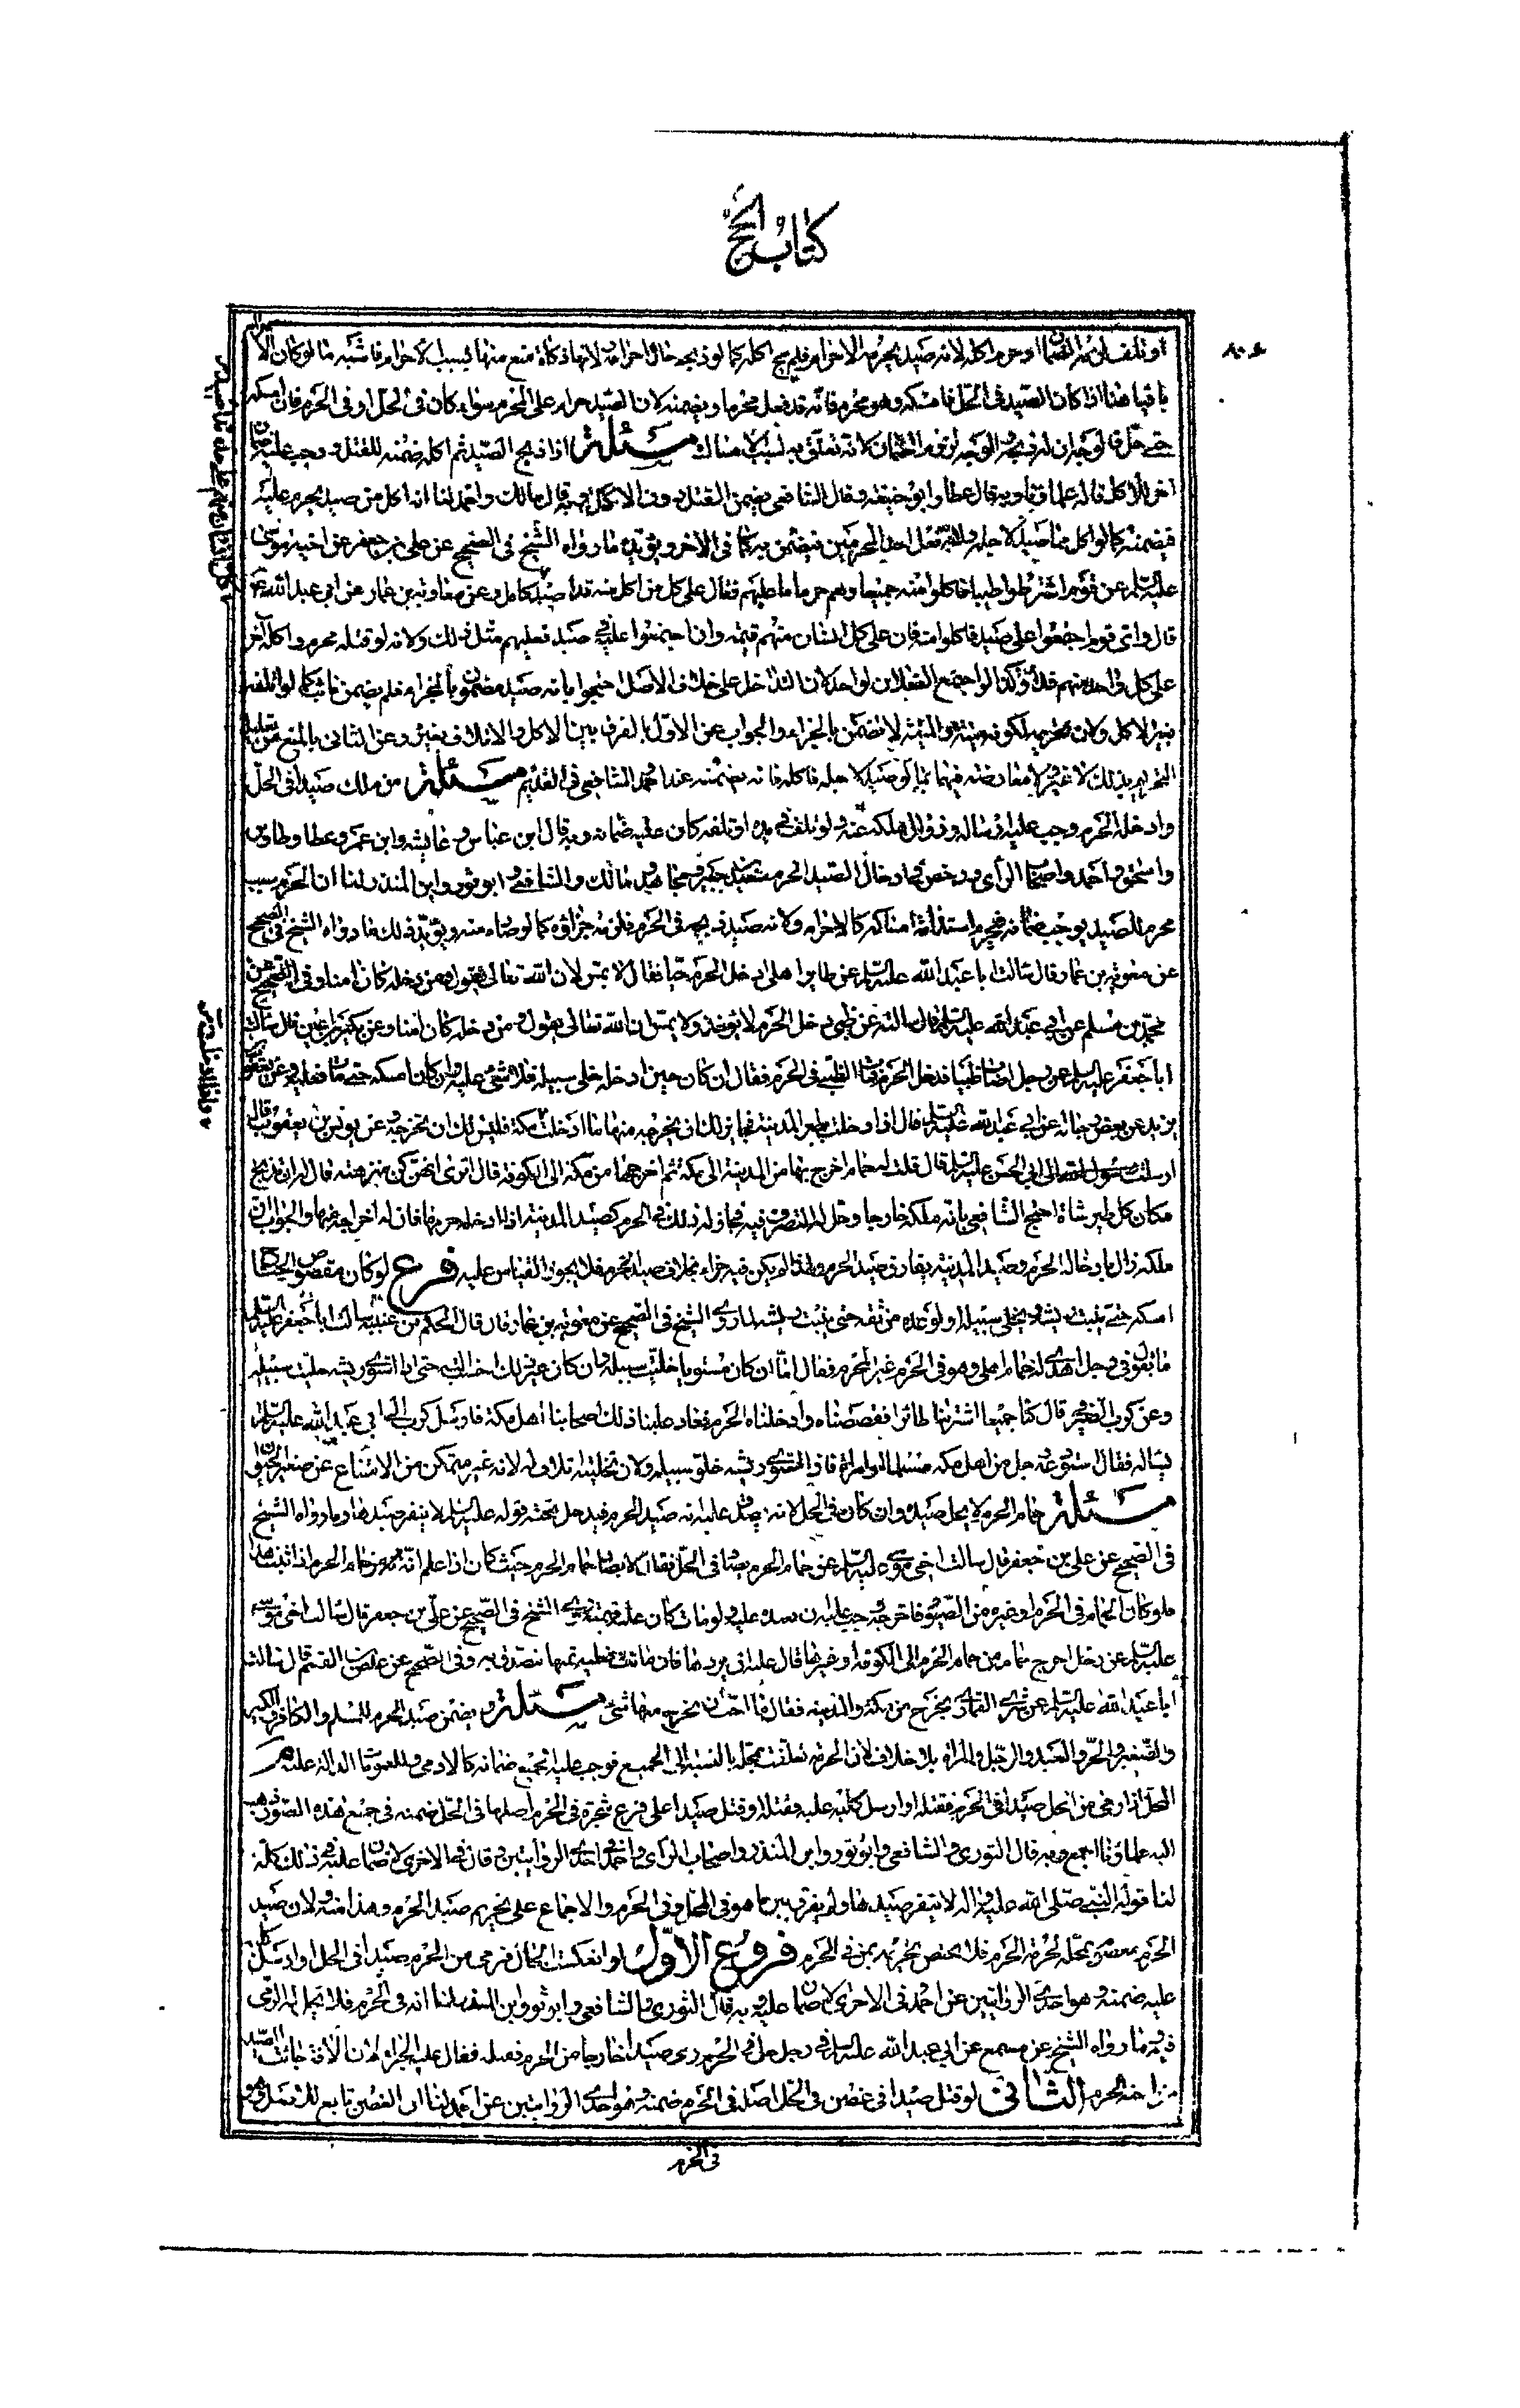 كتاب الحج
٨٠٤
او تلف لزمه الضمان او حرم اكله لانه صيد يحرم الاحرام فلم يبح اكله كما لو ذبحه حال احرامه لانها ذكاة منع منها بسبب الاحرام فاشبه ما لو كان الا
باقيا هذا اذا كان الصيد في الحل فامسكه وهو محرم فانه قد فعل محرما ويضمنه لان الصيد حرام على المحرم سواء كان في الحل او في الحرم فان امسكه
حتى حل لانه تعلق به بسبب الامساك مسئلة اذا ذبح الصيد ثم اكله ضمنه للقتل ووجب عليه ضمان
اخر للاكل قاله علماؤنا وبه قال عطا وابو حنيفة وقال الشافعي يضمن القتل دون الاكل وبه قال مالك واحمد لنا انه اكل من صيد يحرم عليه
فيضمنه كما لو اكل مما صيد لاجله ويؤيده ما رواه الشيخ في الصحيح عن علي بن جعفر عن اخيه موسى
عليه السلام عن قوم اشتروا ظبيا فاكلوا منه جميعا وهم حرم ما عليهم فقال على كل من اكل منه فداء صيد كامل وعن معاوية بن عمار عن ابي عبد الله ع
قال واي قوم اجتمعوا على صيد فاكلوا منه فان على كل انسان منهم قيمته وان اجتمعوا عليه في صيد فعليهم مثل ذلك ولانه لو قتله محرم واكله آخر
على كل واحد منهم فداء وكذا لو اجتمع الفعلان لواحد لان التداخل على خلاف الاصل احتجوا بانه صيد مضمون بالجزاء فلم يضمن ثانيا كما لو اتلفه
بغير الاكل ولان تحريمه لكونه ميتة والميتة لا تضمن بالجزاء والجواب عن الاول بالفرق بين الاكل والاتلاف بغيره وعن الثاني بالمنع من تعليل
التحريم بذلك لا غير ولا معارضته فيهما بما لو صيد لاجله فاكله فانه يضمنه عند احمد الشافعي في القديم مسئلة من ملك صيدا في الحل
وادخله الحرم وجب عليه ارساله وزوال ملكه عنه ولو تلف في يده او اتلفه كان عليه ضمانه وبه قال ابن عباس وعايشه وابن عمر وعطا وطاوس
واسحق واحمد واصحاب الراى ورخص في ادخال الصيد الحرم سعيد بن جبير ومجاهد ومالك والشافعي وابو ثور وابن المنذر لنا ان الحرم سبب
محرم للصيد يوجب ضمانه فيحرم استدامة امساكه كالاحرام ولانه صيد ذبحه في الحرم فلزمه جزاؤه كما لو صاده منه ويؤيد ذلك ما رواه الشيخ في الصحيح
عن معوية بن عمار قال سالت ابا عبد الله عليه السلام عن طاير اهلي دخل الحرم حيا فقال لا يمس لان الله تعالى يقول ومن دخله كان امنا وفي الصحيح عن
محمد بن مسلم عن ابي عبد الله عليه السلام قال سالته عن ظبي دخل الحرم لا يؤخذ ولا يمس ان الله تعالى يقول ومن دخله كان امنا وعن بكير بن اعين قال سالت
ابا جعفر عليه السلام عن رجل اصاب ظبيا فدخل الحرم فمات الظبي في الحرم فقال ان كان حين ادخله خلى سبيله فلا شيء عليه وان كان امسكه حتى مات فعليه وعن يعقوب
يزيد عن بعض رجاله عن ابي عبد الله عليه السلام قال اذا ادخلت الطير المدينة فجايز لك ان تخرجه منها ما ادخلت مكة فليس لك ان تخرجه وعن يونس بن يعقوب قال
ارسلت الى ابي الحسن عليه السلام قال قلت له حمام اخرج بها من المدينة الى مكة ثم اخرجها من مكة الى الكوفة قال ارى انهن كن فرهة قال له ان يذبح
مكان كل طير شاة احتج الشافعي بانه ملكه خارجا وحل له التصرف فيه فجاز له ذلك في الحرم كصيد المدينة اذا ادخله حرمها فان له اخراجه عنها والجواب ان
ملكه زال بادخاله الحرم وصيد المدينة يفارق صيد الحرم ولهذا لم يكن فيه جزاء بخلاف صيد الحرم فلا يجوز القياس عليه فرع لو كان مقصوص الجناح
امسكه حتى ينبت ريشه ويخلى سبيله او اودعه من ثقة حتى ينبت ريشه لما رواه الشيخ في الصحيح عن معوية بن عمار قال قال الحكم بن عتيبة سالت ابا جعفر عليه السلام
ما تقول في رجل اهدى له حمام اهلي وهو في الحرم غير المحرم فقال اما ان كان مستويا خليت سبيله وان كان غير ذلك احسنت اليه حتى اذا استوى ريشه خليت سبيله
وعن كرب الصيرفي قال كنا جميعا اشترينا طائرا فقصصناه وادخلناه الحرم فعاب علينا ذلك اصحابنا اهل مكة فارسل كرب الى ابي عبد الله عليه السلام
يساله فقال استودعه رجل من اهل مكة مسلما او امراة فاذا استوى ريشه خلوا سبيله ولان تخليته اتلاف له لانه غير متمكن من الامتناع عن صغير الحيوان
مسئلة حمام الحرم لا يحل صيده وان كان في الحل لانه يصدق عليه انه صيد الحرم فيدخل تحت قوله عليه السلام لا ينفر صيدها وما رواه الشيخ
في الصحيح عن علي بن جعفر قال سالت اخي موسى عليه السلام عن حمام الحرم يصاد في الحل فقال لا يصاد حمام الحرم حيث كان اذا علم انه من حمام الحرم اذا ثبت هذا
فلو كان الحمام في الحرم او غيره من الصيود فاخرجه وجب عليه ان يعيده عليه ولو مات كان عليه قيمته روى الشيخ في الصحيح عن علي بن جعفر قال سالت اخي موسى
عليه السلام عن رجل اخرج حمامة من حمام الحرم الى الكوفة او غيرها قال عليه ان يردها فان ماتت فعليه ثمنها يتصدق به وفي الصحيح عن عيص بن القسم قال سالت
ابا عبد الله عليه السلام عن شرى القمارى يخرج من مكة والمدينة فقال ما احب ان يخرج منها شئ مسئلة ويضمن صيد الحرم المسلم والكافر والكبير
والصغير والحر والعبد والرجل والمراة بلا خلاف لان الحرمة تعلقت بمحله بالنسبة الى الجميع فوجب عليه الجميع ضمانه كالادمي وللعمومات الدالة عليه
المحل اذا رمى من الحل صيدا في الحرم فقتله او ارسل كلبه عليه فقتله او قتل صيدا على فرع شجرة في الحرم اصلها في الحل ضمنه في جميع هذه الصور ذهب
اليه علماؤنا اجمع وبه قال الثوري والشافعي وابو ثور وابن المنذر واصحاب الراى واحمد في احدى الروايتين وقال في الاخرى لا ضمان عليه في ذلك كله
لنا قوله النبي صلى الله عليه واله لا ينفر صيدها ولم يفرق بين ما هو في الحل وفي الحرم والاجماع على تحريم صيد الحرم وهذا منه ولان صيد
الحرم معصوم بمحله لحرمة الحرم فلا يختص تحريمه بمن في الحرم فروع الاول لو انعكست الحال فرمى من الحرم صيدا في الحل او ارسل كلبه
عليه ضمنه وهو احدى الروايتين عن احمد وفي الاخرى لا ضمان عليه وبه قال الثوري والشافعي وابو ثور وابن المنذر لنا انه في الحرم فلا يحل له الرمي
فيه وما رواه الشيخ عن مسمع عن ابي عبد الله عليه السلام في رجل حل في الحرم رمى صيدا خارجا من الحرم فقتله فقال عليه الجزاء لان الافة جاءت الصيد
من ناحية الحرم الثاني لو قتل صيدا في غصن في الحل اصله في الحرم ضمنه وهو احدى الروايتين عن احمد لنا ان الغصن تابع للاصل وهو
في الحرم